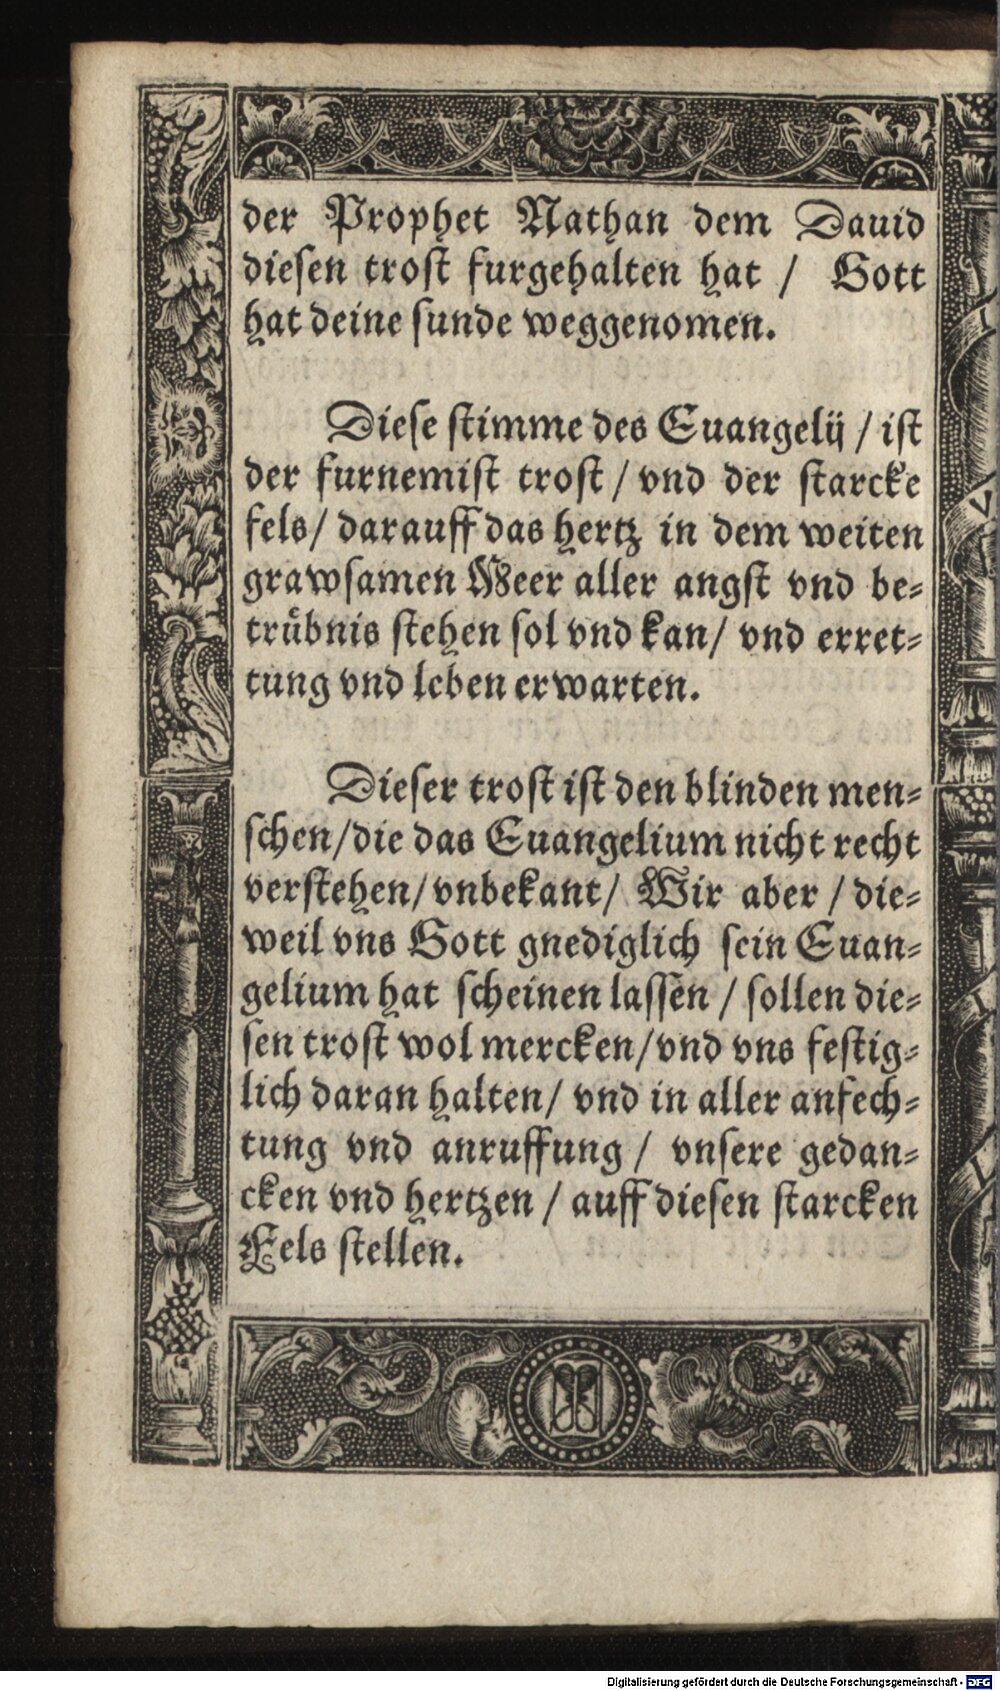 der Prophet Nathan dem Dauid
diesen trost furgehalten hat / Gott
hat deine sunde weggenomen.
Diese stimme des Euangelij / ist
der furnemist trost / vnd der starcke
fels / darauff das hertz in dem weiten
grawsamen Meer aller angst vnd be-
trübnis stehen sol vnd kan / vnd erret-
tung vnd leben erwarten.
Dieser trost ist den blinden men-
schen / die das Euangelium nicht recht
verstehen / vnbekant / Wir aber / die-
weil vns Gott gnediglich sein Euan-
gelium hat scheinen lassen / sollen die-
sen trost wol mercken / vnd vns festig-
lich daran halten / vnd in aller anfech-
tung vnd anruffung / vnsere gedan-
cken vnd hertzen / auff diesen starcken
Fels stellen.
Digitalisierung gefördert durch die Deutsche Forschungsgemeinschaft - DFG